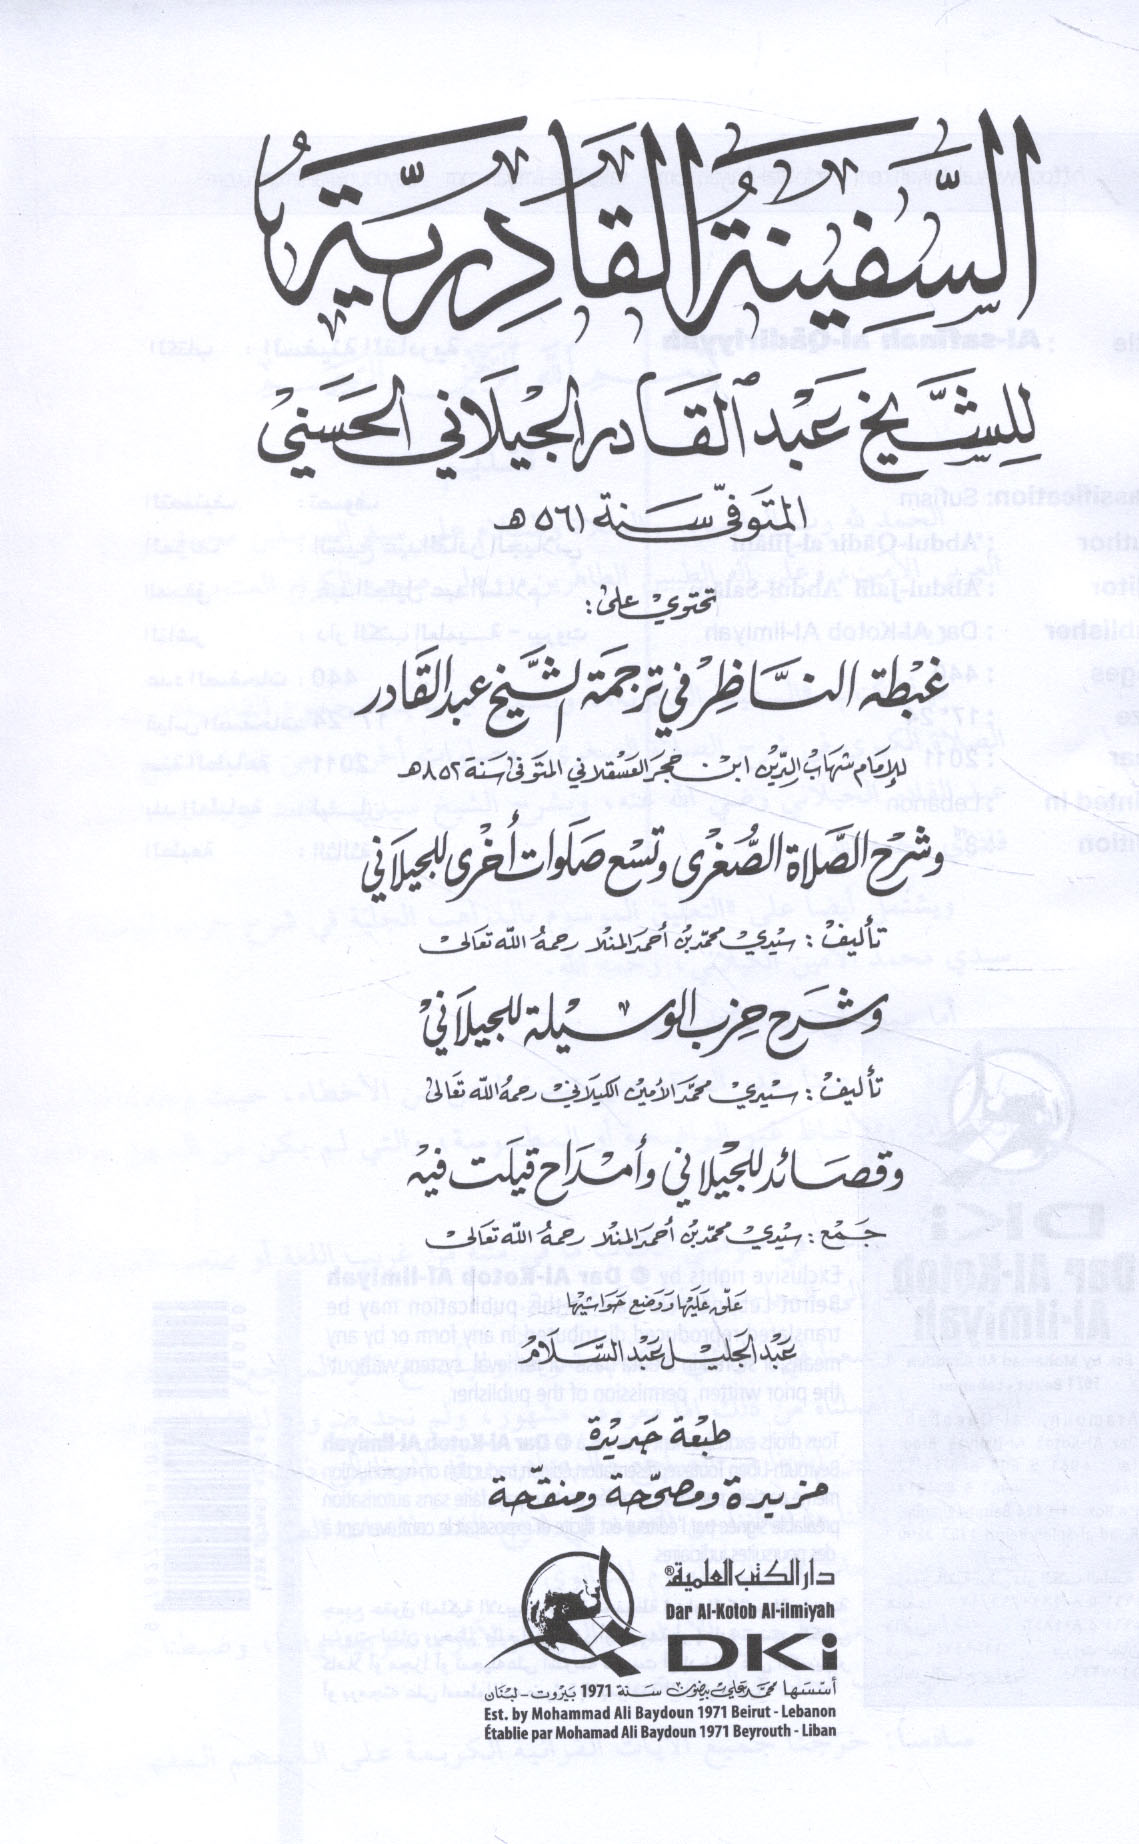 السَّفِينَةُ القَادِرِيَّةُ
للشَّيخ عَبْد القَادر الجيلَاني الحَسَني
المتوَفّى سَنة ٥٦١ هـ
تحتوي على:
غبطة النَّاظِر في ترجَمة الشَّيخ عبد القَادر
للإمَام شهَاب الدِّين ابن حَجَر العَسقلاني المتوَفى سَنة ٨٥٢ هـ
وشَرْح الصَّلاة الصُّغرى وتسع صَلَوات أُخرى للجيلَاني
تأليف: سيّدي محمّد بن أحمَد المنلا رحمهُ اللّه تعَالى
وشَرح حِزب الوسيلة للجيلَاني
تأليف: سيّدي محمَّد الأمين الكيلاني رحمهُ اللّه تعَالى
وقصَائد للجيْلَاني وأمْدَاح قيلَت فيه
جَمْع: سيّدي محمّد بن أحمَد المنلا رحمهُ اللّه تعَالى
علّق عليهَا وَوضع حَواشيهَا
عَبْد الجَليل عَبْد السَّلَام
طبعَة جَديْدة
مزيدة ومصحّحَة ومنقّحَة
دار الكتب العلمية®
Dar Al-Kotob Al-ilmiyah
DKi
أسّسَها محمَّد علي بيضون سَنة 1971 بَيروت - لبنان
Est. by Mohammad Ali Baydoun 1971 Beirut - Lebanon
Établie par Mohamad Ali Baydoun 1971 Beyrouth - Liban